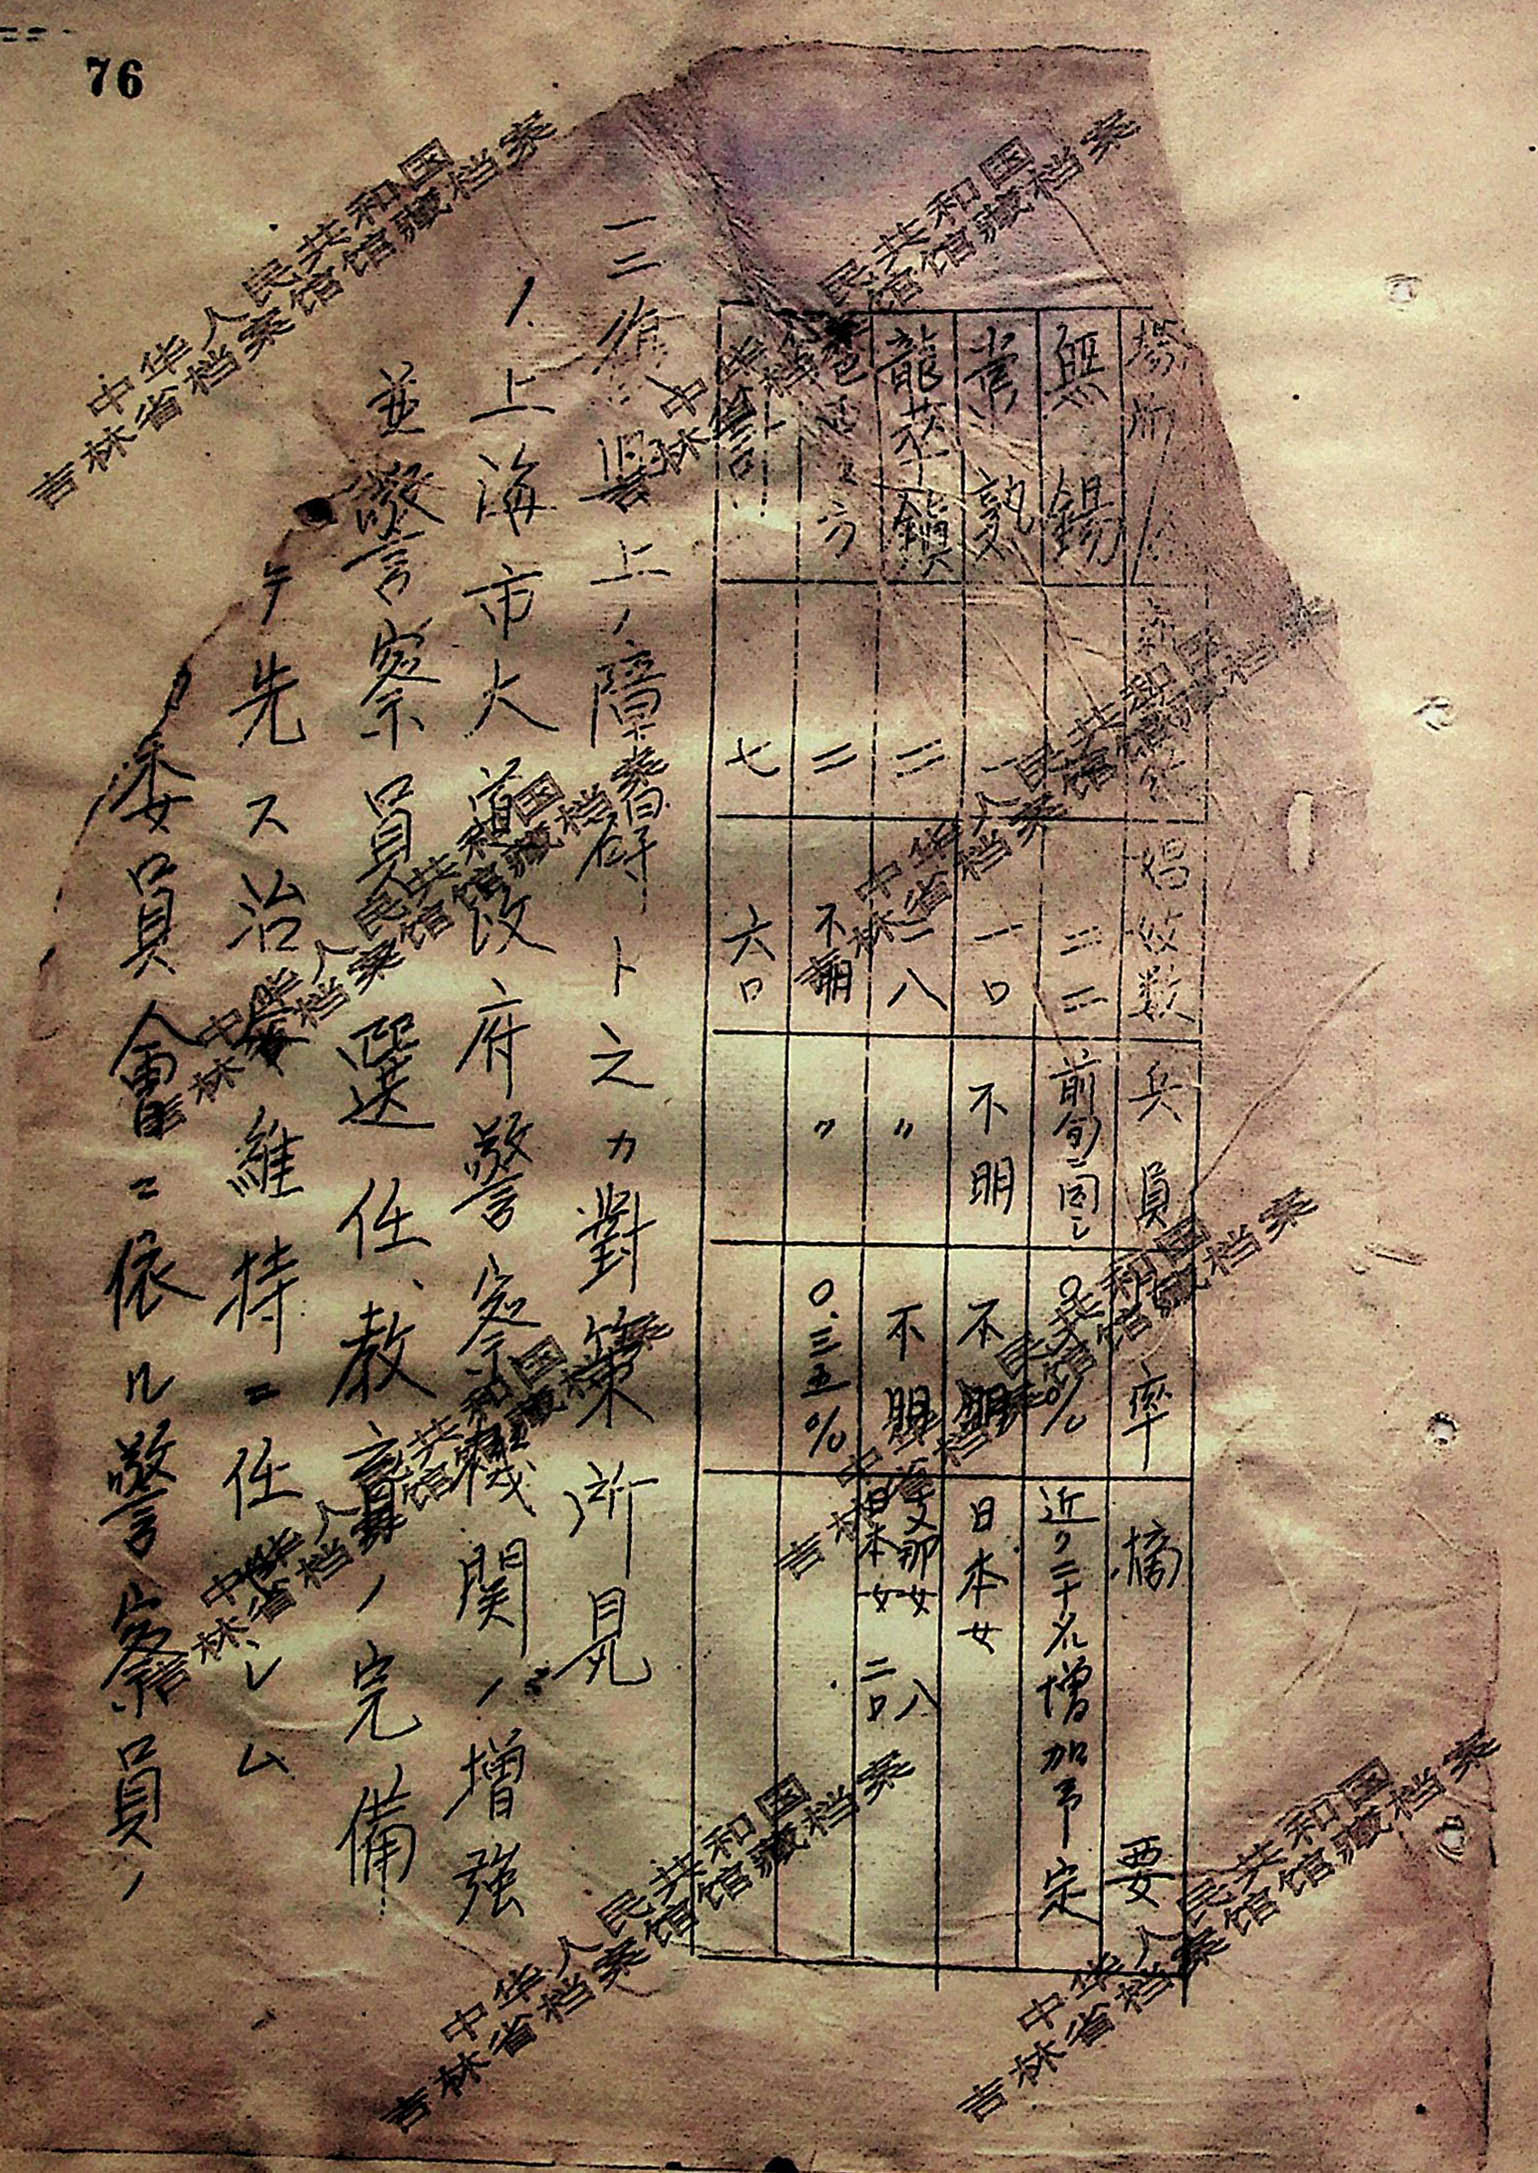 76
場所
娼妓数
兵員
率
摘要
無錫
二二
前旬ニ同シ
近ク二十名増加予定
常熟
一口
不明
不明
日本女
龍華鎮
三
二八
〃
不明
支那女 八
日本女 二口
二
不明
〃
〇.三五%
七
六口
三、復旧上ノ障碍ト之カ對策所見
1、上海市大道政府警察機関ノ増強
並警察員選任、教育ノ完備
先ス治安維持ニ任セシム
委員會ニ依ル警察員ノ
中华人民共和国
吉林省档案馆馆藏档案
中华人民共和国
吉林省档案馆馆藏档案
中华人民共和国
吉林省档案馆馆藏档案
中华人民共和国
吉林省档案馆馆藏档案
中华人民共和国
吉林省档案馆馆藏档案
中华人民共和国
吉林省档案馆馆藏档案
中华人民共和国
吉林省档案馆馆藏档案
中华人民共和国
吉林省档案馆馆藏档案